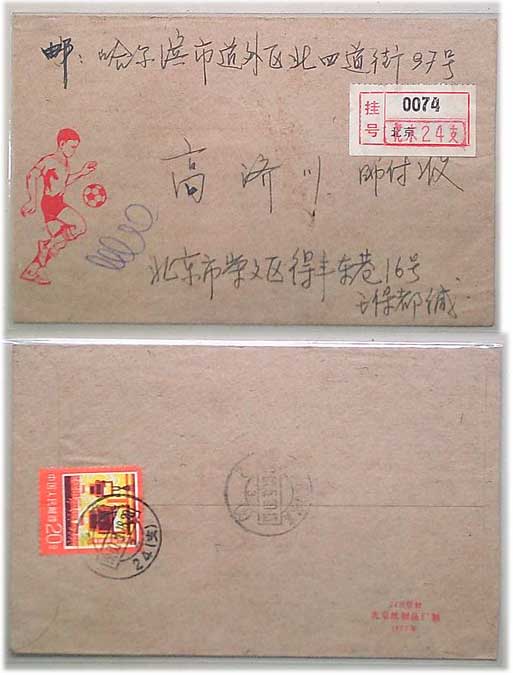 邮：哈尔滨市道外区北四道街97号
挂号 0074
北京24支
高济川 师付收
北京市崇文区得丰东巷16号
王保都缄
中国人民邮政
20分
24(支)
北京纸制品厂制
1977年